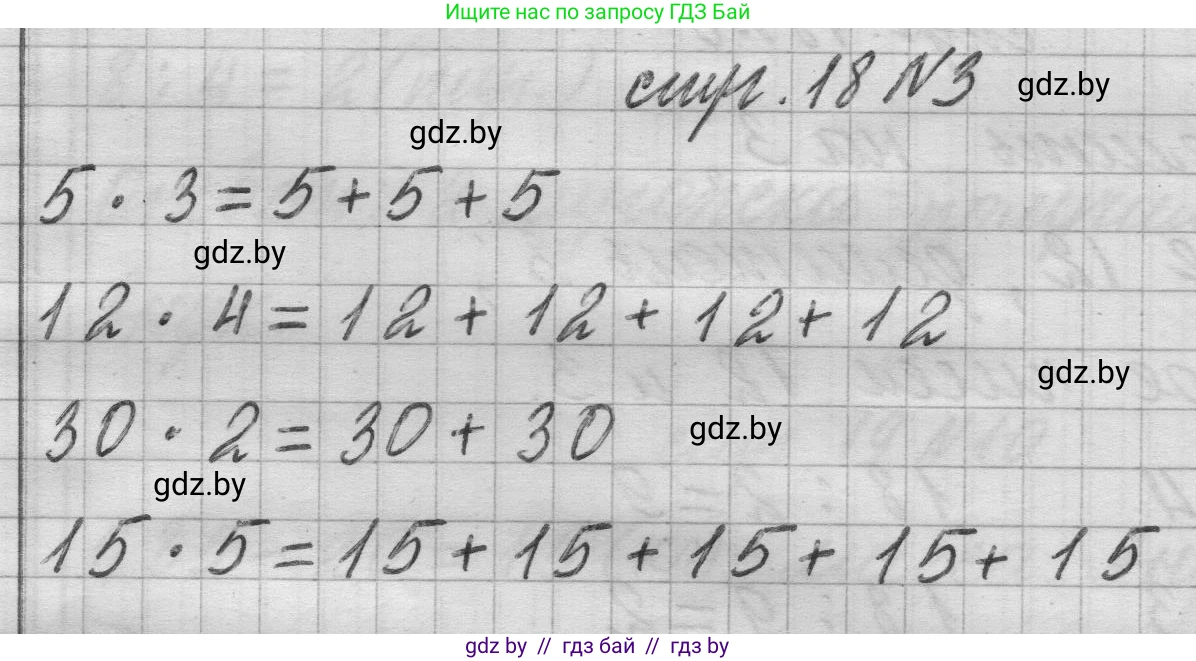 Ищите нас по запросу ГДЗ Бай
стр. 18 N3 gdz.by
gdz.by
5 · 3 = 5 + 5 + 5
gdz.by
12 · 4 = 12 + 12 + 12 + 12
gdz.by
30 · 2 = 30 + 30 gdz.by
gdz.by
15 · 5 = 15 + 15 + 15 + 15 + 15
gdz by // гдз бай // гдз by